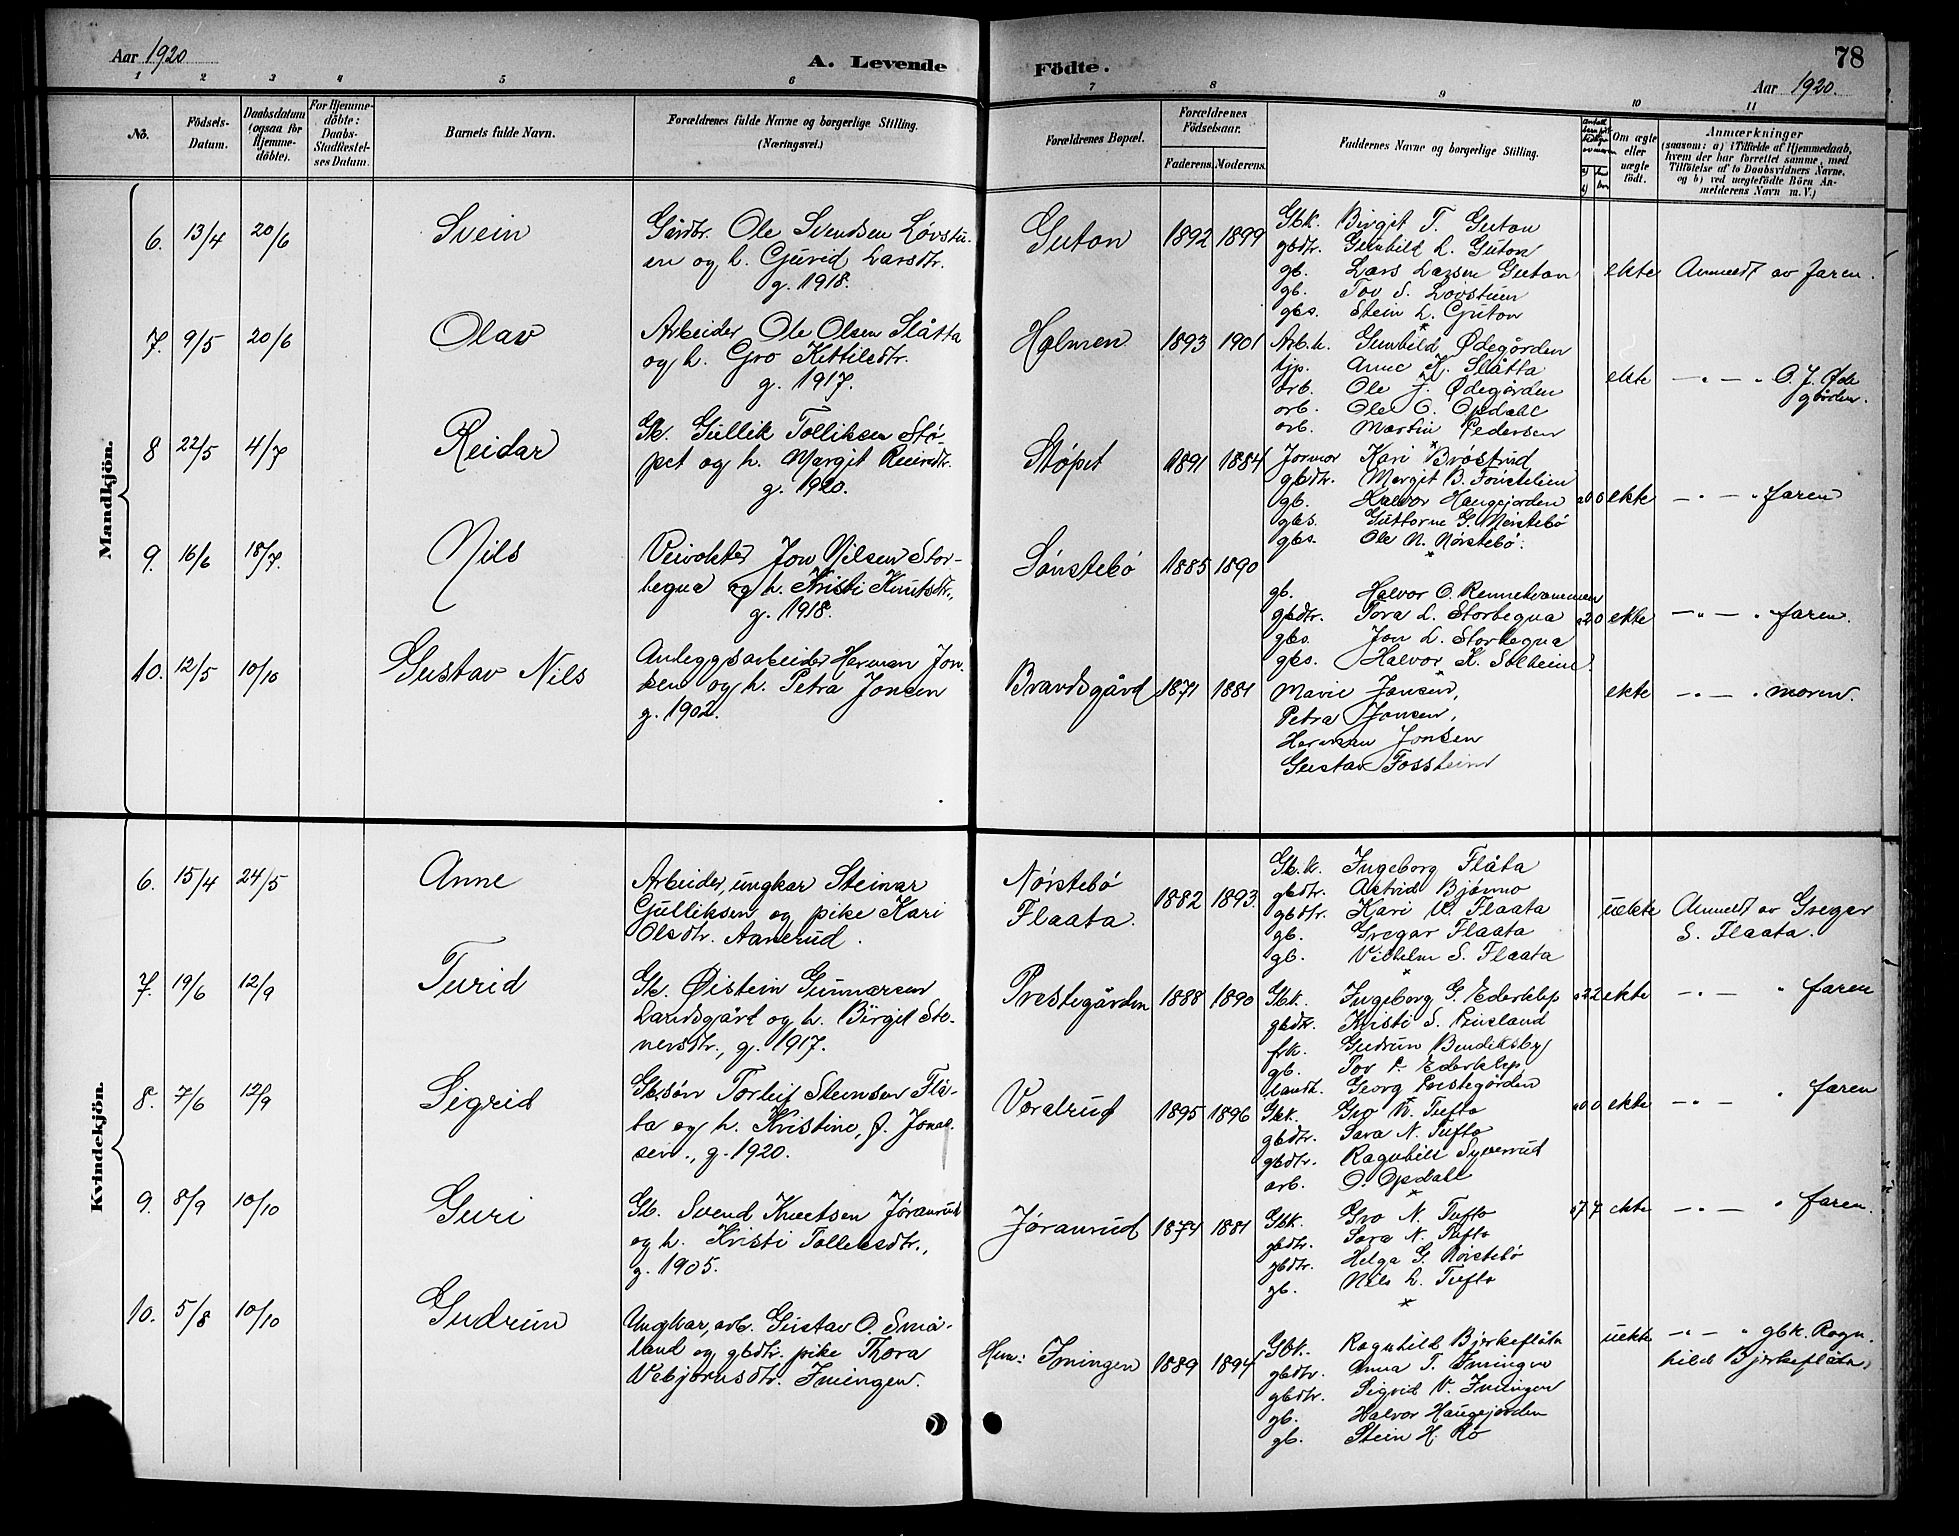 Aar 1920
A. Levende
Födte.
78
Aar 1920.
1 2 3 4 5 6 7 8 9 10 11
No.
Födsels-Datum.
Daabsdatum (ogsaa for Hjemme-döbte).
For Hjemme-döbte: Daabs-Stadfæstel-ses Datum.
Barnets fulde Navn.
Forældrenes fulde Navne og borgerlige Stilling.
(Næringsvei.)
Forældrenes Bopæl.
Forældrenes Födselsaar.
Faderens. Moderens.
Faddernes Navne og borgerlige Stilling.
Om ægte eller uægte födt.
Anmærkninger
(saasom: a) i Tilfælde af Hjemmedaab,
hvem der har forrettet samme, med
Tilföielse af to Daabsvidners Navne,
og b) ved uægtefödte Börn An-
melderens Navn m. V.)
Mandkjön.
6. 13/4 20/6 Svein
Gårdbr. Ole Svendsen Løvstu-
en og h. Gunild Larsdtr.
g. 1918.
Guton 1892 1899
Gbk. Birgit T. Guton
gbdtr. Gunhild L. Guton
gb. Lars Larsen Guton
gb. Tov S. Løvstuen
gbs. Stein L. Guton
ekte Anmeldt av faren.
7. 9/5 20/6 Olav
Arbeider Ole Olsen Slåtta
og h. Gro Kittilsdtr.
g. 1917.
Holmen 1893 1901
Arb.h. Gunhild Ødegården
tjp. Anne K. Slåtta
arb. Ole J. Ødegården
arb. Ole O. Opdahl
arb. Martin Pedersen
ekte — " — " O. J. Øde
gården.
8 22/5 4/7 Reidar
Gb. Gullik Tolliksen Stø-
pet og h. Margit Reiersdtr.
g. 1920.
Støpet 1891 1884
Jormor Kari Brøstrud
gbdtr. Margit B. Fønstelien
gb. Halvor Haugejorden
gbs. Guttorm G. Nørstebø
gbs. Ole N. Nørstebø.
ekte — " — " faren
9. 16/6 18/7. Nils
Veivokter Jon Nilsen Stor-
begua og h. Kristi Knutsdtr.,
g. 1918.
Sønstebø 1885 1890
gb. Halvor O. Rennehvammen
gbdtr. Tora L. Storbegua
gbs. Jon L. Storbegua
gbs. Halvor K. Solheim
20 ekte — " — " faren.
10. 12/5 10/10 Gustav Nils
Anleggsarbeider Herman Jon-
sen og h. Petra Jonsen
g. 1902.
Brandsgård 1871 1881
Marie Jonsen,
Petra Jonsen,
Herman Jonsen
Gustav Fossheim
ekte — " — " moren.
Kvindekjön.
6. 15/4 24/5 Anne
Arbeider, ungkar Steinar
Gulliksen og pike Kari
Olsdtr. Aanerud.
Nørstebø
Flaata.
1882 1893.
Gb.k. Ingeborg Flåta
gbdtr. Astrid Bjønno
gbdtr. Kari Flaata
gb. Gregar Flaata
gb. Vilhelm S. Flaata
uekte Anmeldt av Gregar
S. Flaata.
7. 19/6 12/9 Turid
Gb. Øistein Gunnarsen
Landsgårt og h. Birgit Ste-
nersdtr., g. 1917.
Prestegården 1888 1890
Gbk. Ingeborg G. Ederklep
gbdtr. Kristi S.
frk. Gudrun Bendiksby
gb. Tov Ederklep
landh. Georg Prestegården
22 ekte — " — " faren
8. 7/6 12/9 Sigrid
Gbsøn Torleif Steinsen Flå-
ta og h. Kristine, f. Jona-
sen., g. 1920.
Voralrud 1895 1896
Gbk. Gro N. Tufto
gbdtr. Sara N. Tufto
gbdtr. Ragnhild Syverud
arb. O. Opdahl
ekte — " — " faren
9. 8/9 10/10 Guri
Gb. Svend Knutsen Jøranrud
og h. Kristi Tolleifsdtr.,
g. 1905.
Jøranrud 1874 1881
Gbk. Gro N. Tufto
gbdtr. Sara N. Tufto
gbdtr. Helga G. Nørstebø
gb. Nils L. Tufto
7 ekte — " — " faren.
10. 5/8 10/10 Gudrun
Ungkar, arb. Gustav O. Små-
land og gbdtr. pike Thora
Vebjørnsdtr. Imingen.
Hun: Imingen 1889 1894
Gbk. Ragnhild Bjerkeflåta
gbdtr. Anna T. Imingen
gbdtr. Sigrid V. Imingen
gb. Halvor Haugejorden
gb. Stein H. Rø
uekte — " — " gbk. Ragn
hild Bjerkeflåta